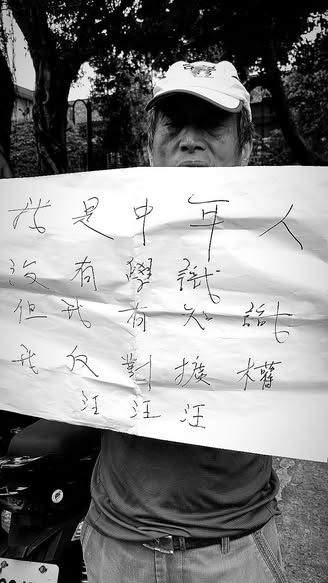 我是中年人
沒有學識
但我有知識
我反對擴權
汪汪汪